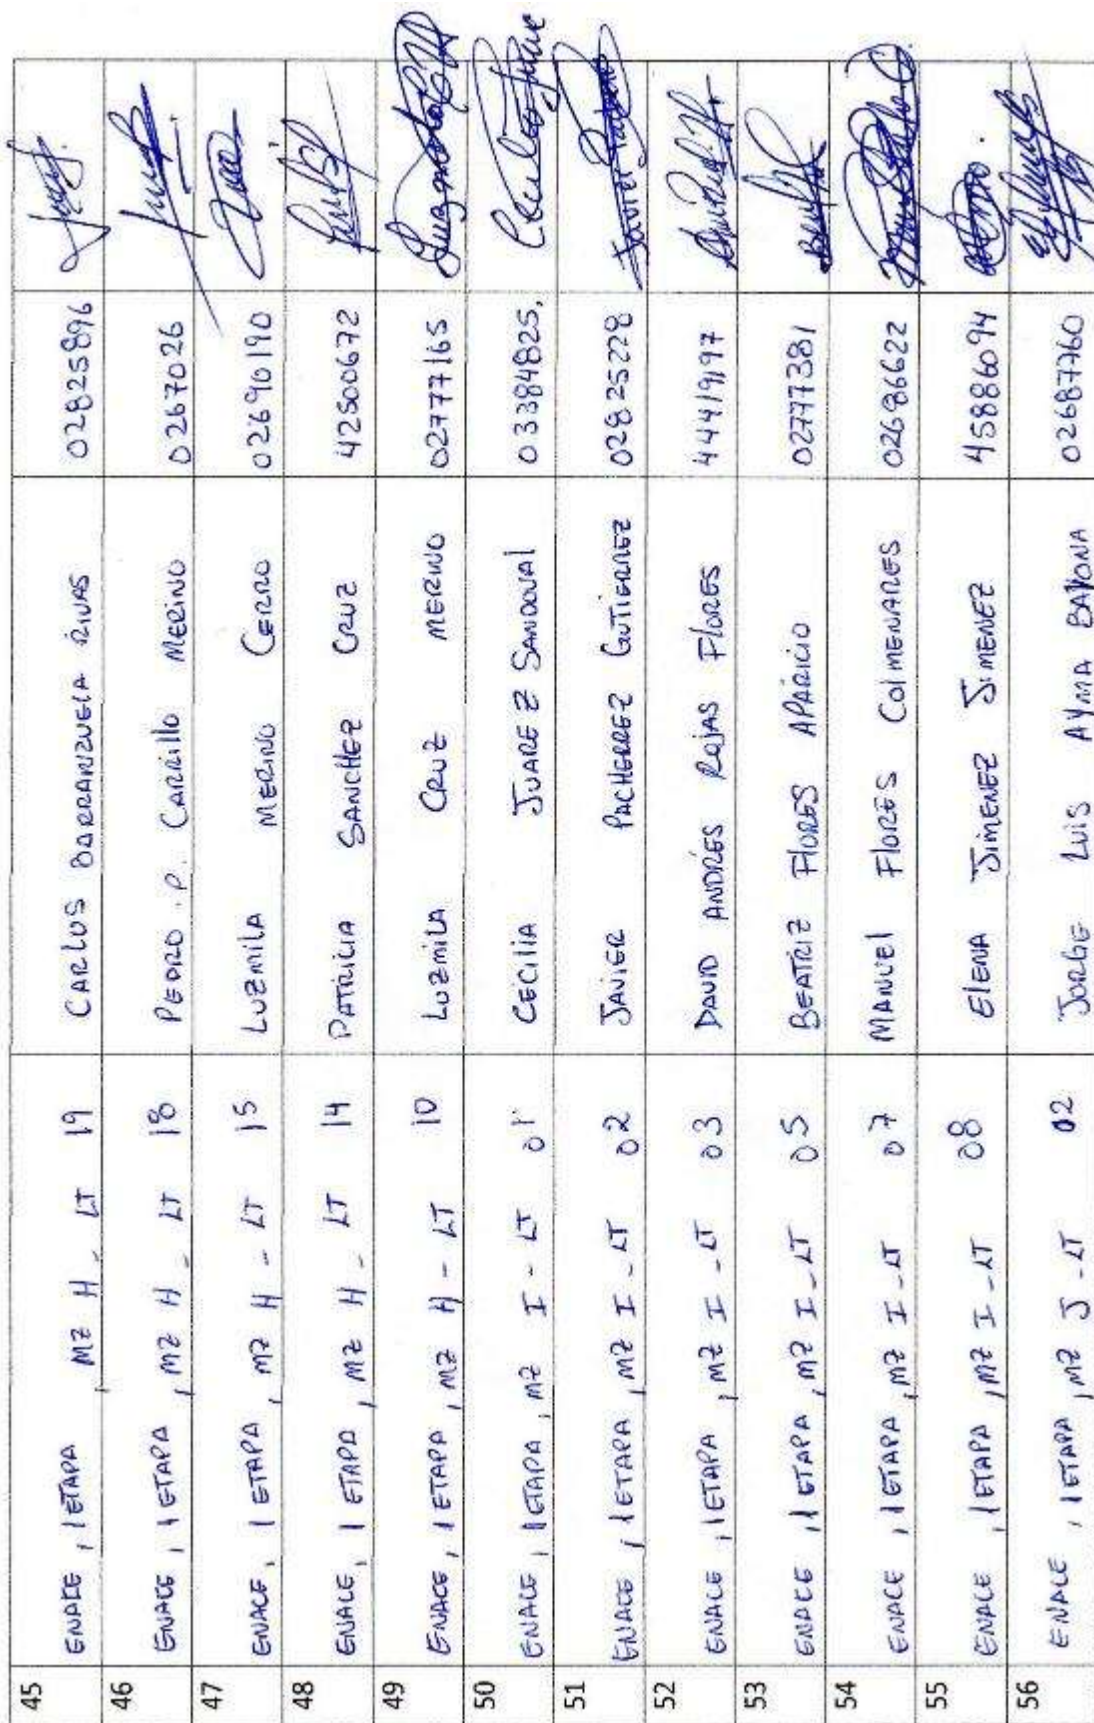 45 ENACE, 1 ETAPA, MZ H - LT 19 CARLOS BARRANZUELA RIVAS 02825896
46 ENACE, 1 ETAPA, MZ H - LT 18 PEDRO P. CARRILLO MERINO 02670026
47 ENACE, 1 ETAPA, MZ H - LT 15 LUZMILA MERINO CERRO 02690190
48 ENACE, 1 ETAPA, MZ H - LT 14 PATRICIA SANCHEZ CRUZ 42500672
49 ENACE, 1 ETAPA, MZ H - LT 10 LUZMILA CRUZ MERINO 02777165
50 ENACE, 1 ETAPA, MZ I - LT 01 CECILIA JUAREZ SANDOVAL 03384825.
51 ENACE, 1 ETAPA, MZ I - LT 02 JAVIER PACHERREZ GUTIERREZ 02825228
52 ENACE, 1 ETAPA, MZ I - LT 03 DAVID ANDRÉS ROJAS FLORES 44419197
53 ENACE, 1 ETAPA, MZ I - LT 05 BEATRIZ FLORES APARICIO 02777381
54 ENACE, 1 ETAPA, MZ I - LT 07 MANUEL FLORES COLMENARES 02686622
55 ENACE, 1 ETAPA, MZ I - LT 08 ELENA JIMENEZ JIMENEZ 45886094
56 ENACE, 1 ETAPA, MZ J - LT 02 JORGE LUIS AYMA BAYONA 02687760